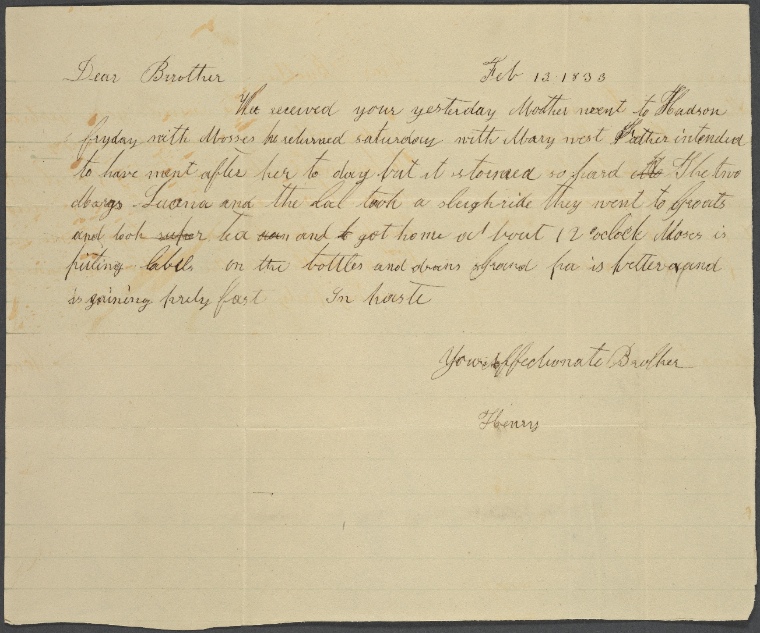 Dear Brother Feb 13 1833
We received your yesterday Mother went to Hudson
fryday with Mosses he returned saturday with Mary west Father intended
to have went after her to day but it stormed so hard the The two
Marys Lucena and the Gal took a sleighride they went to Groats
and took super tea and to got home at bout 12 oclock Moses is
puting labels on the bottles and Grand pa is better and
is gaining prety fast In haste
Your affectionate Brother
Henry